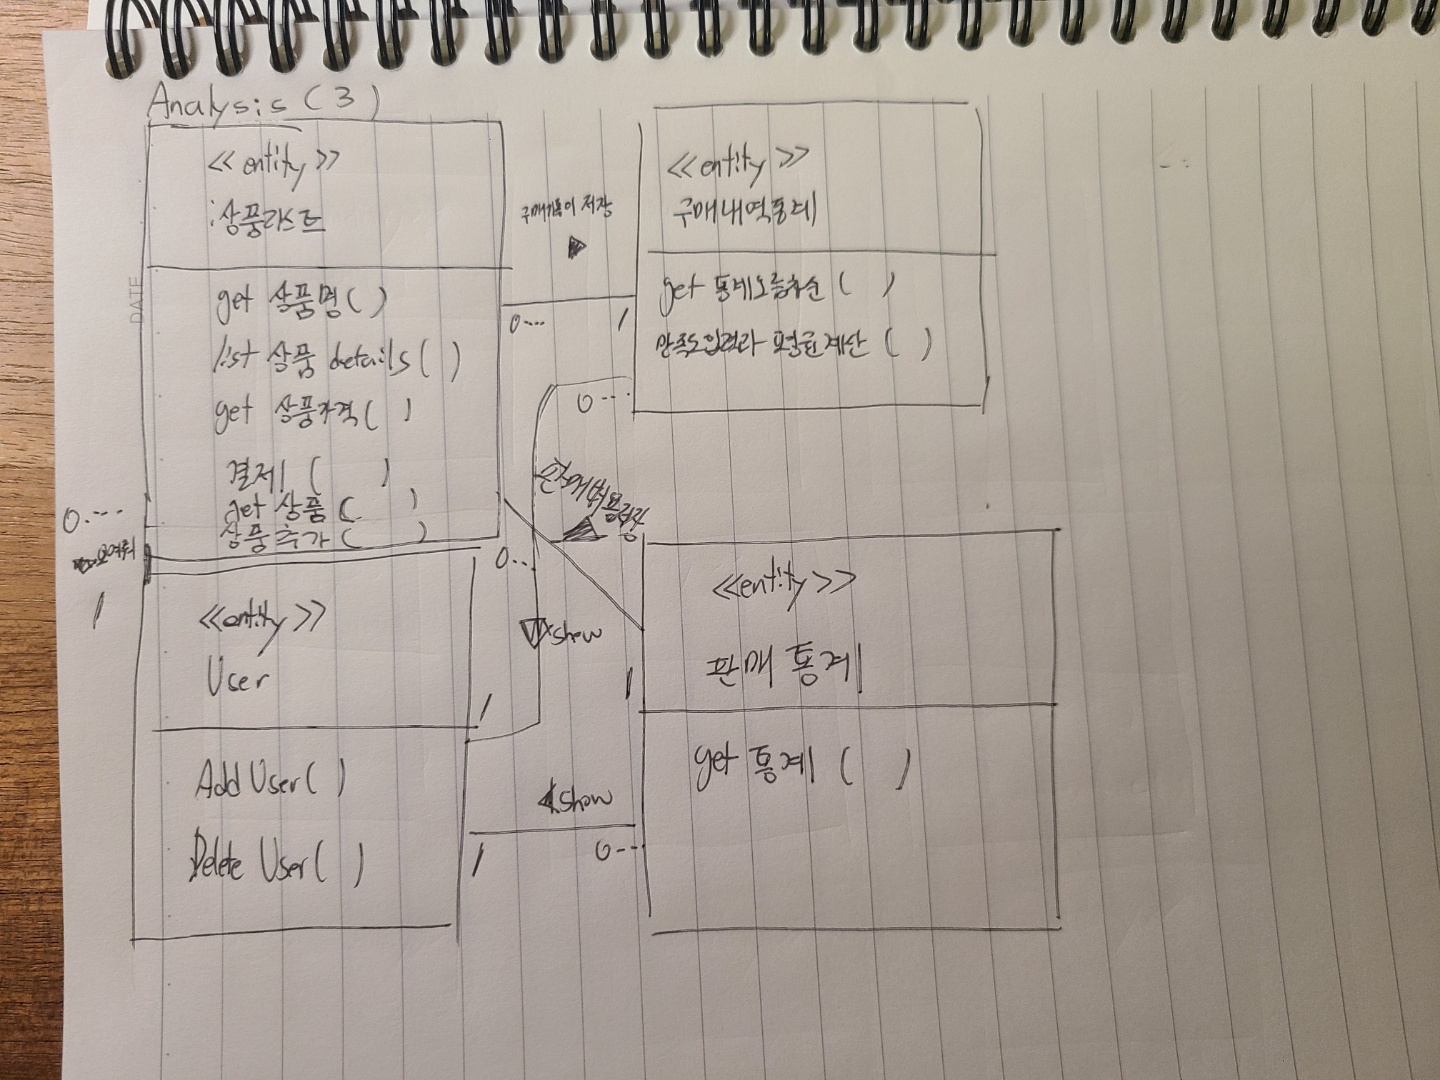 Analysis (3)
<<entity>>
:상품리스트
get 상품명( )
list 상품 details( )
get 상품가격( )
결제( )
get 상품( )
상품추가( )
저장
0...
1
<<entity>>
구매내역통계
get 통계오름차순( )
만족도입력과 평균계산( )
0...
0....
1
0...
show
<<entity>>
User
Add User( )
Delete User( )
1
<<entity>>
판매 통계
get 통계( )
1
show
1
0...
DATE